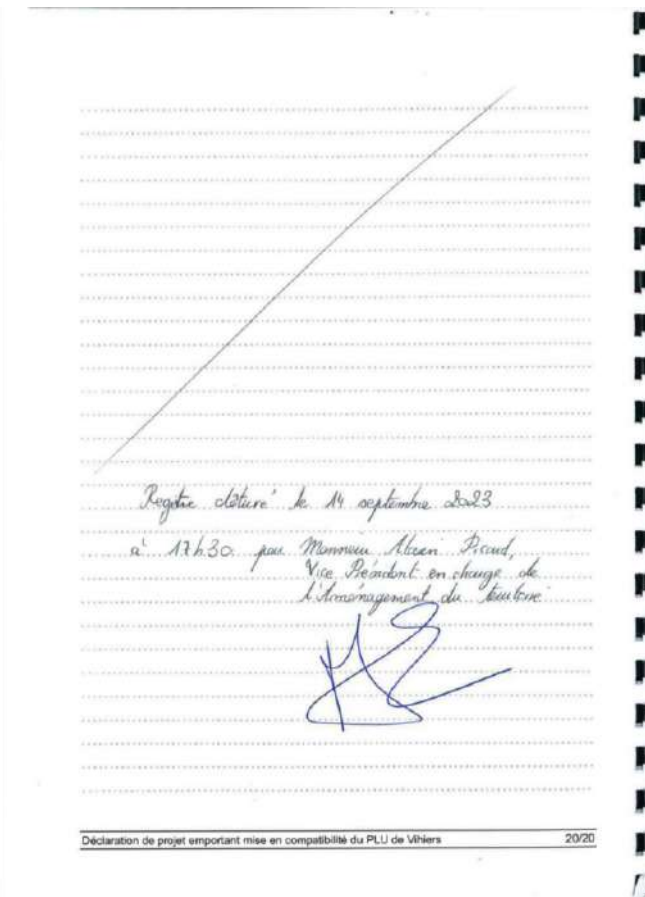 Registre clôturé le 14 septembre 2023
à 17h30 par Monsieur Picard,
Vice Président en charge de
l'Aménagement du territoire
Déclaration de projet emportant mise en compatibilité du PLU de Vihiers 20/20